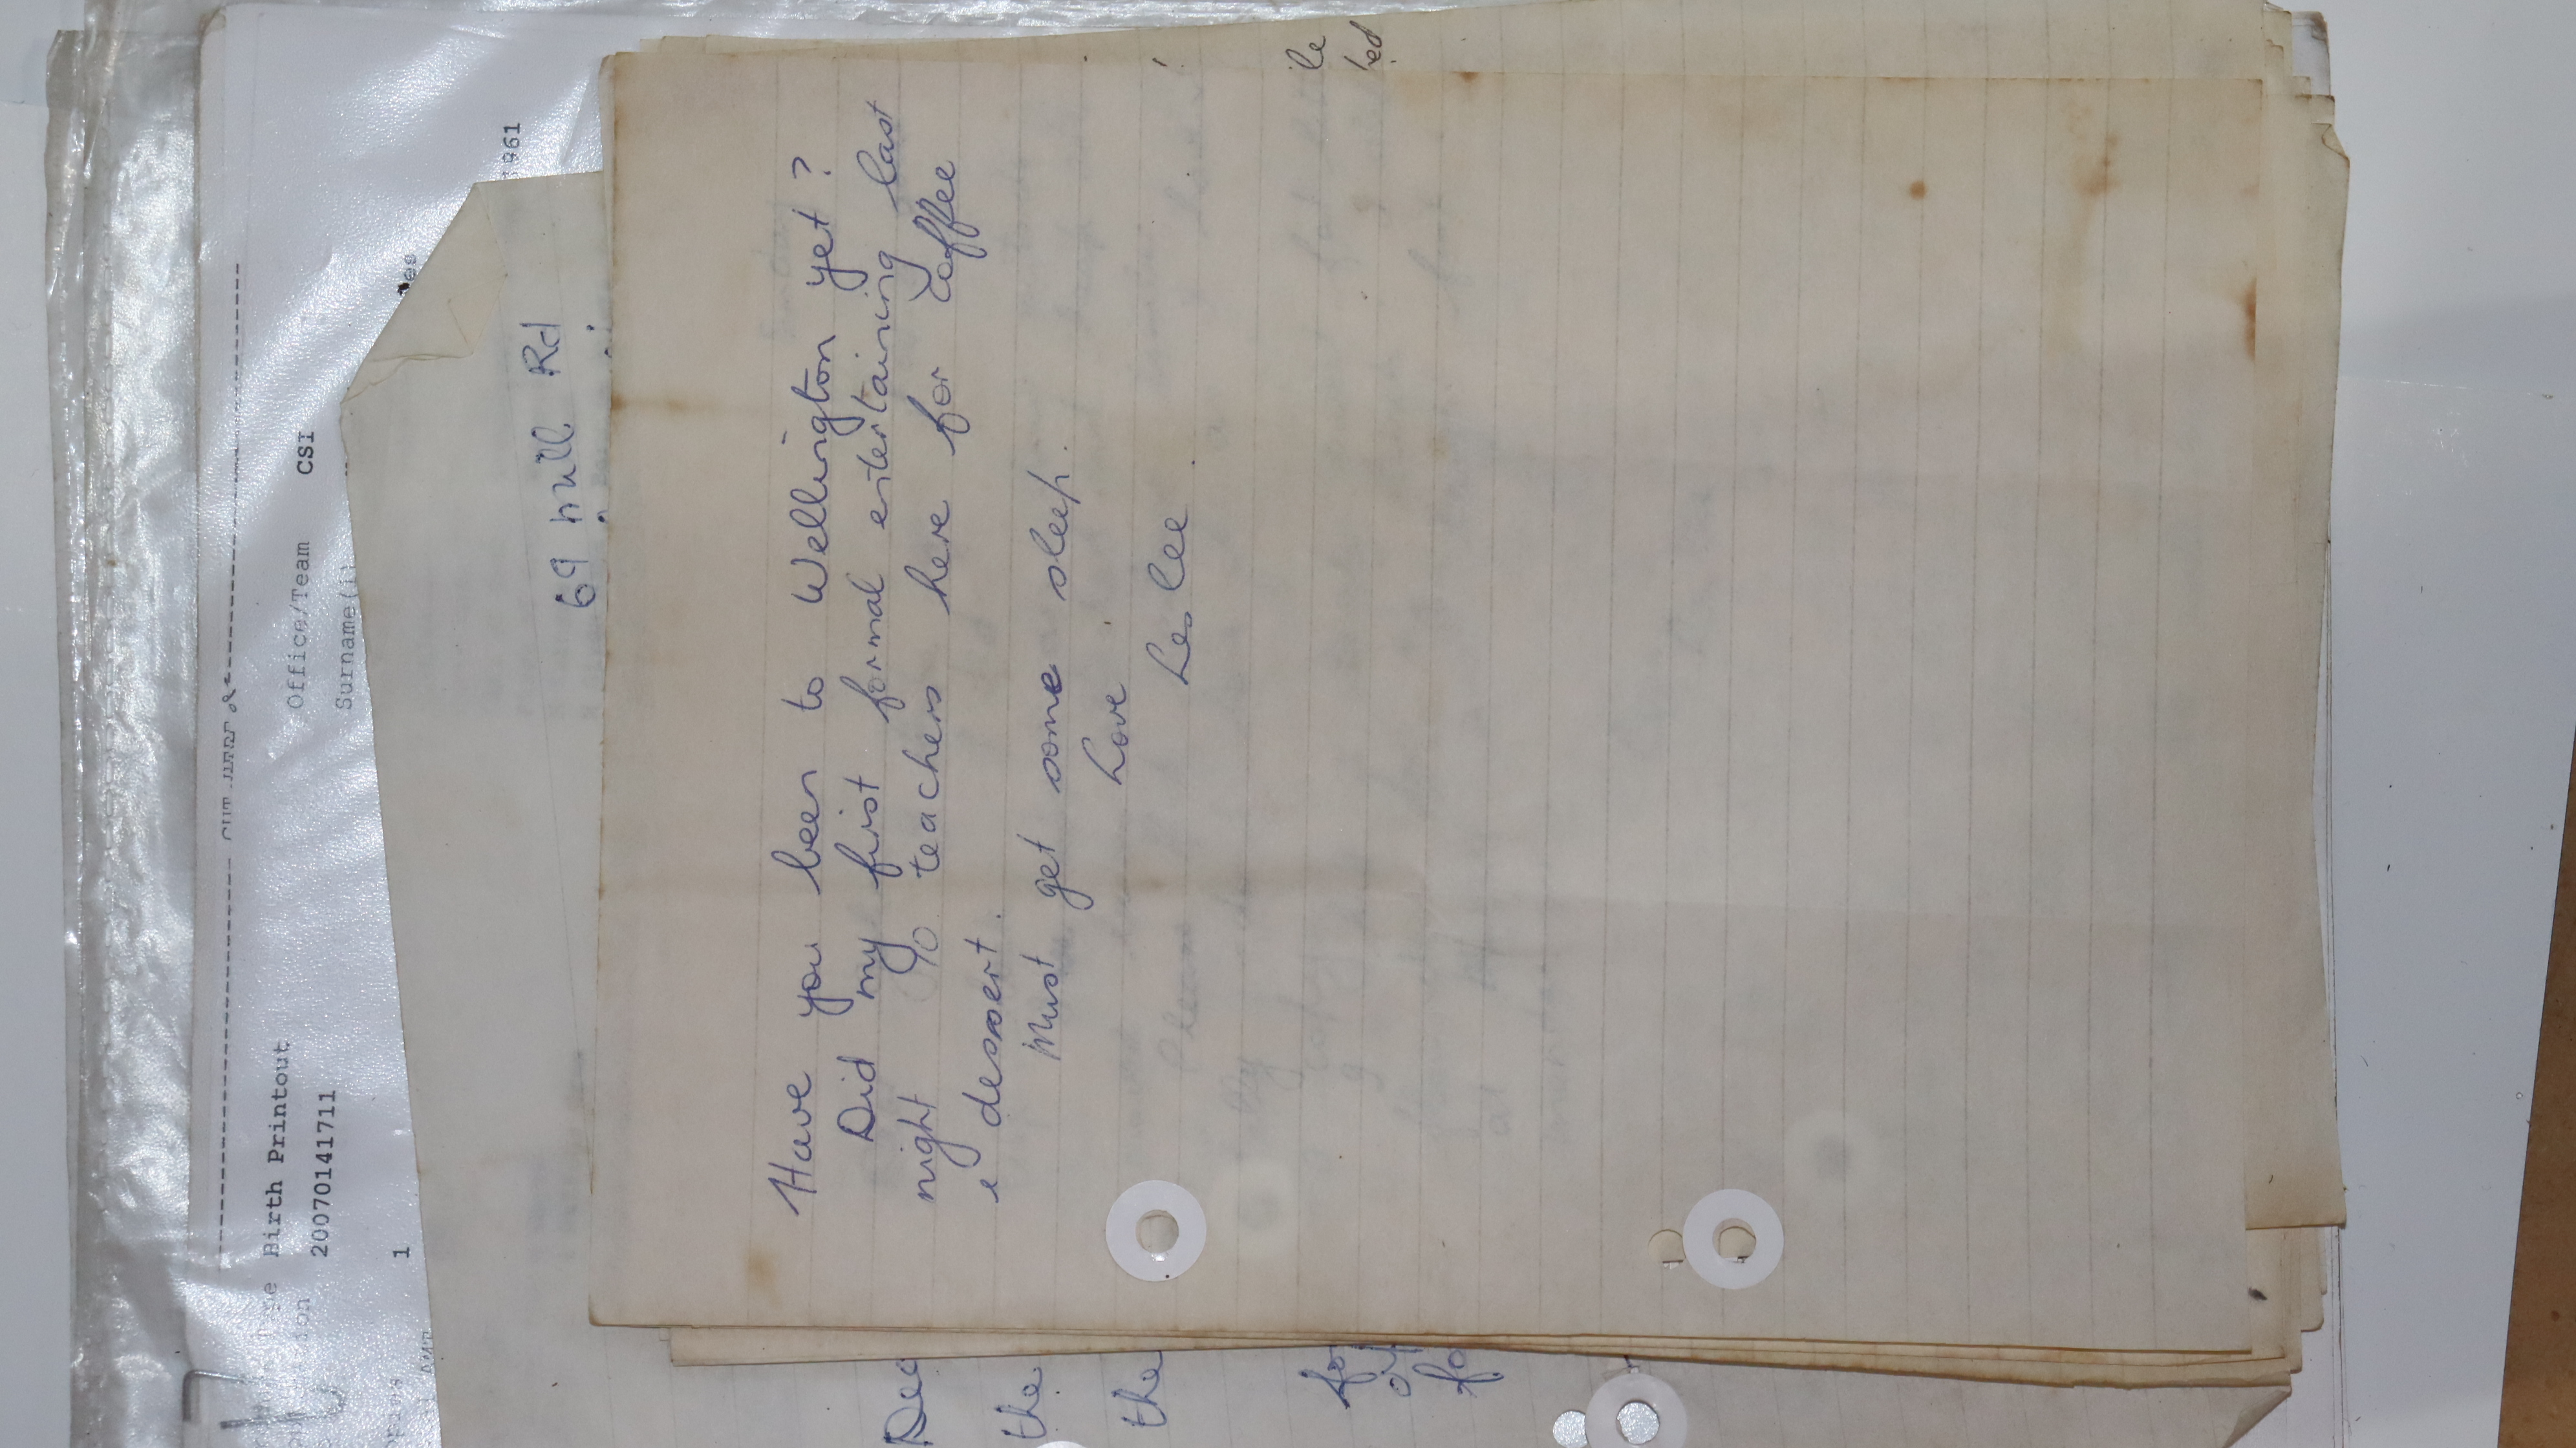 Birth Printout
2007014171​1
Office/Team CSI
Surname(s)
1
1961
69 Mill Rd
Have you been to Wellington yet?
Did my first formal entertaining last
night 90 teachers here for coffee
& dessert.
Must get some sleep.
Love
Leslee
the
the
le